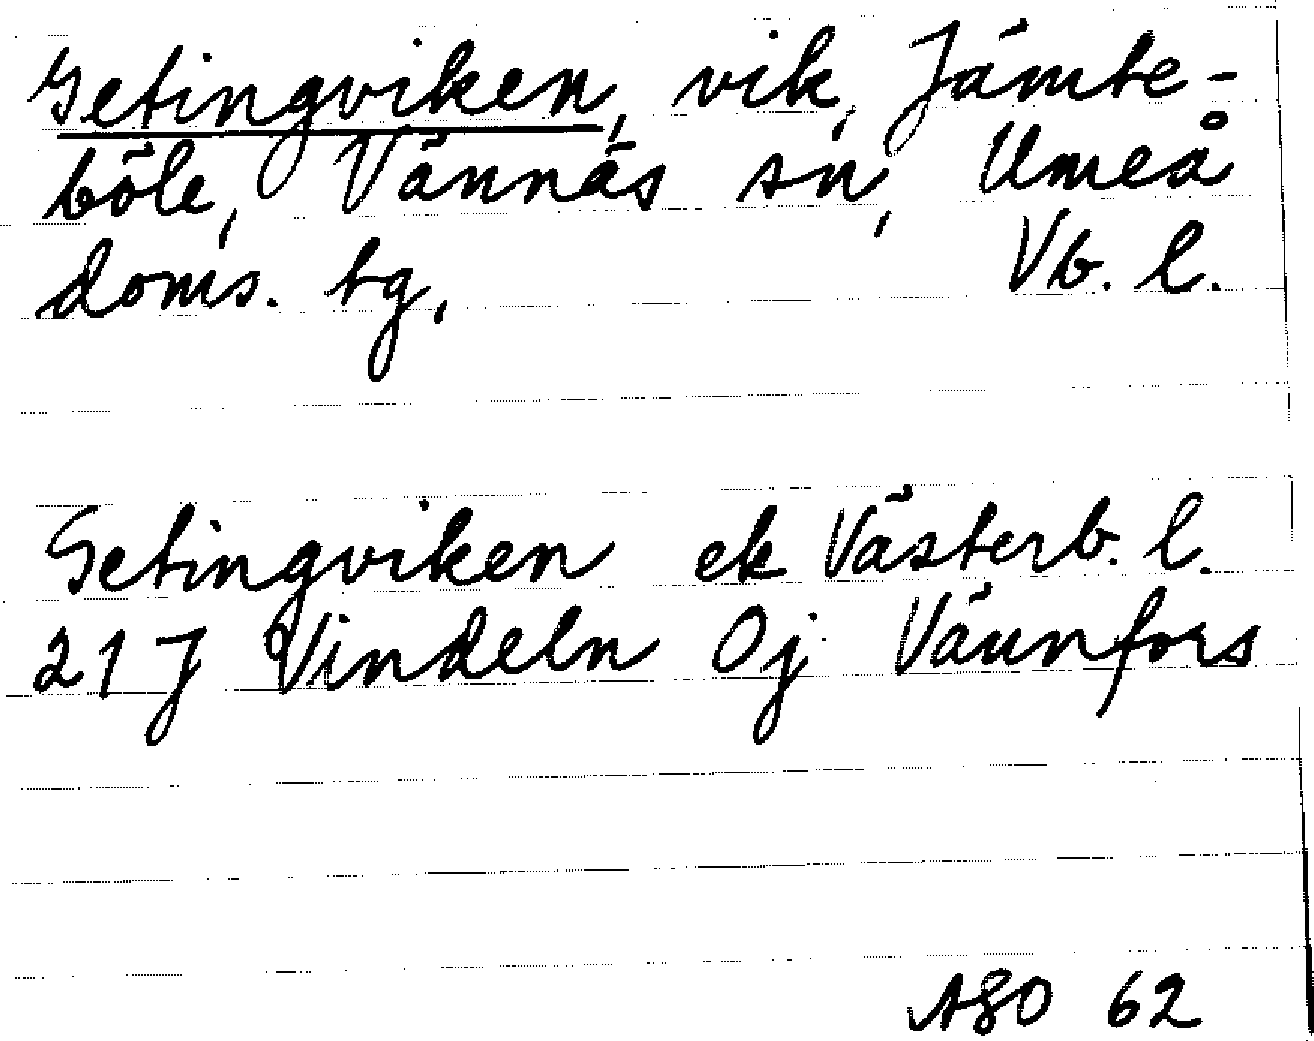 Getingviken, vik, Jämte-
böle, Vännäs sn, Umeå
doms. tg, Vb. l.
Getingviken ek Västerb. l.
21 J Vindeln Oj Vännfors
ASO 62